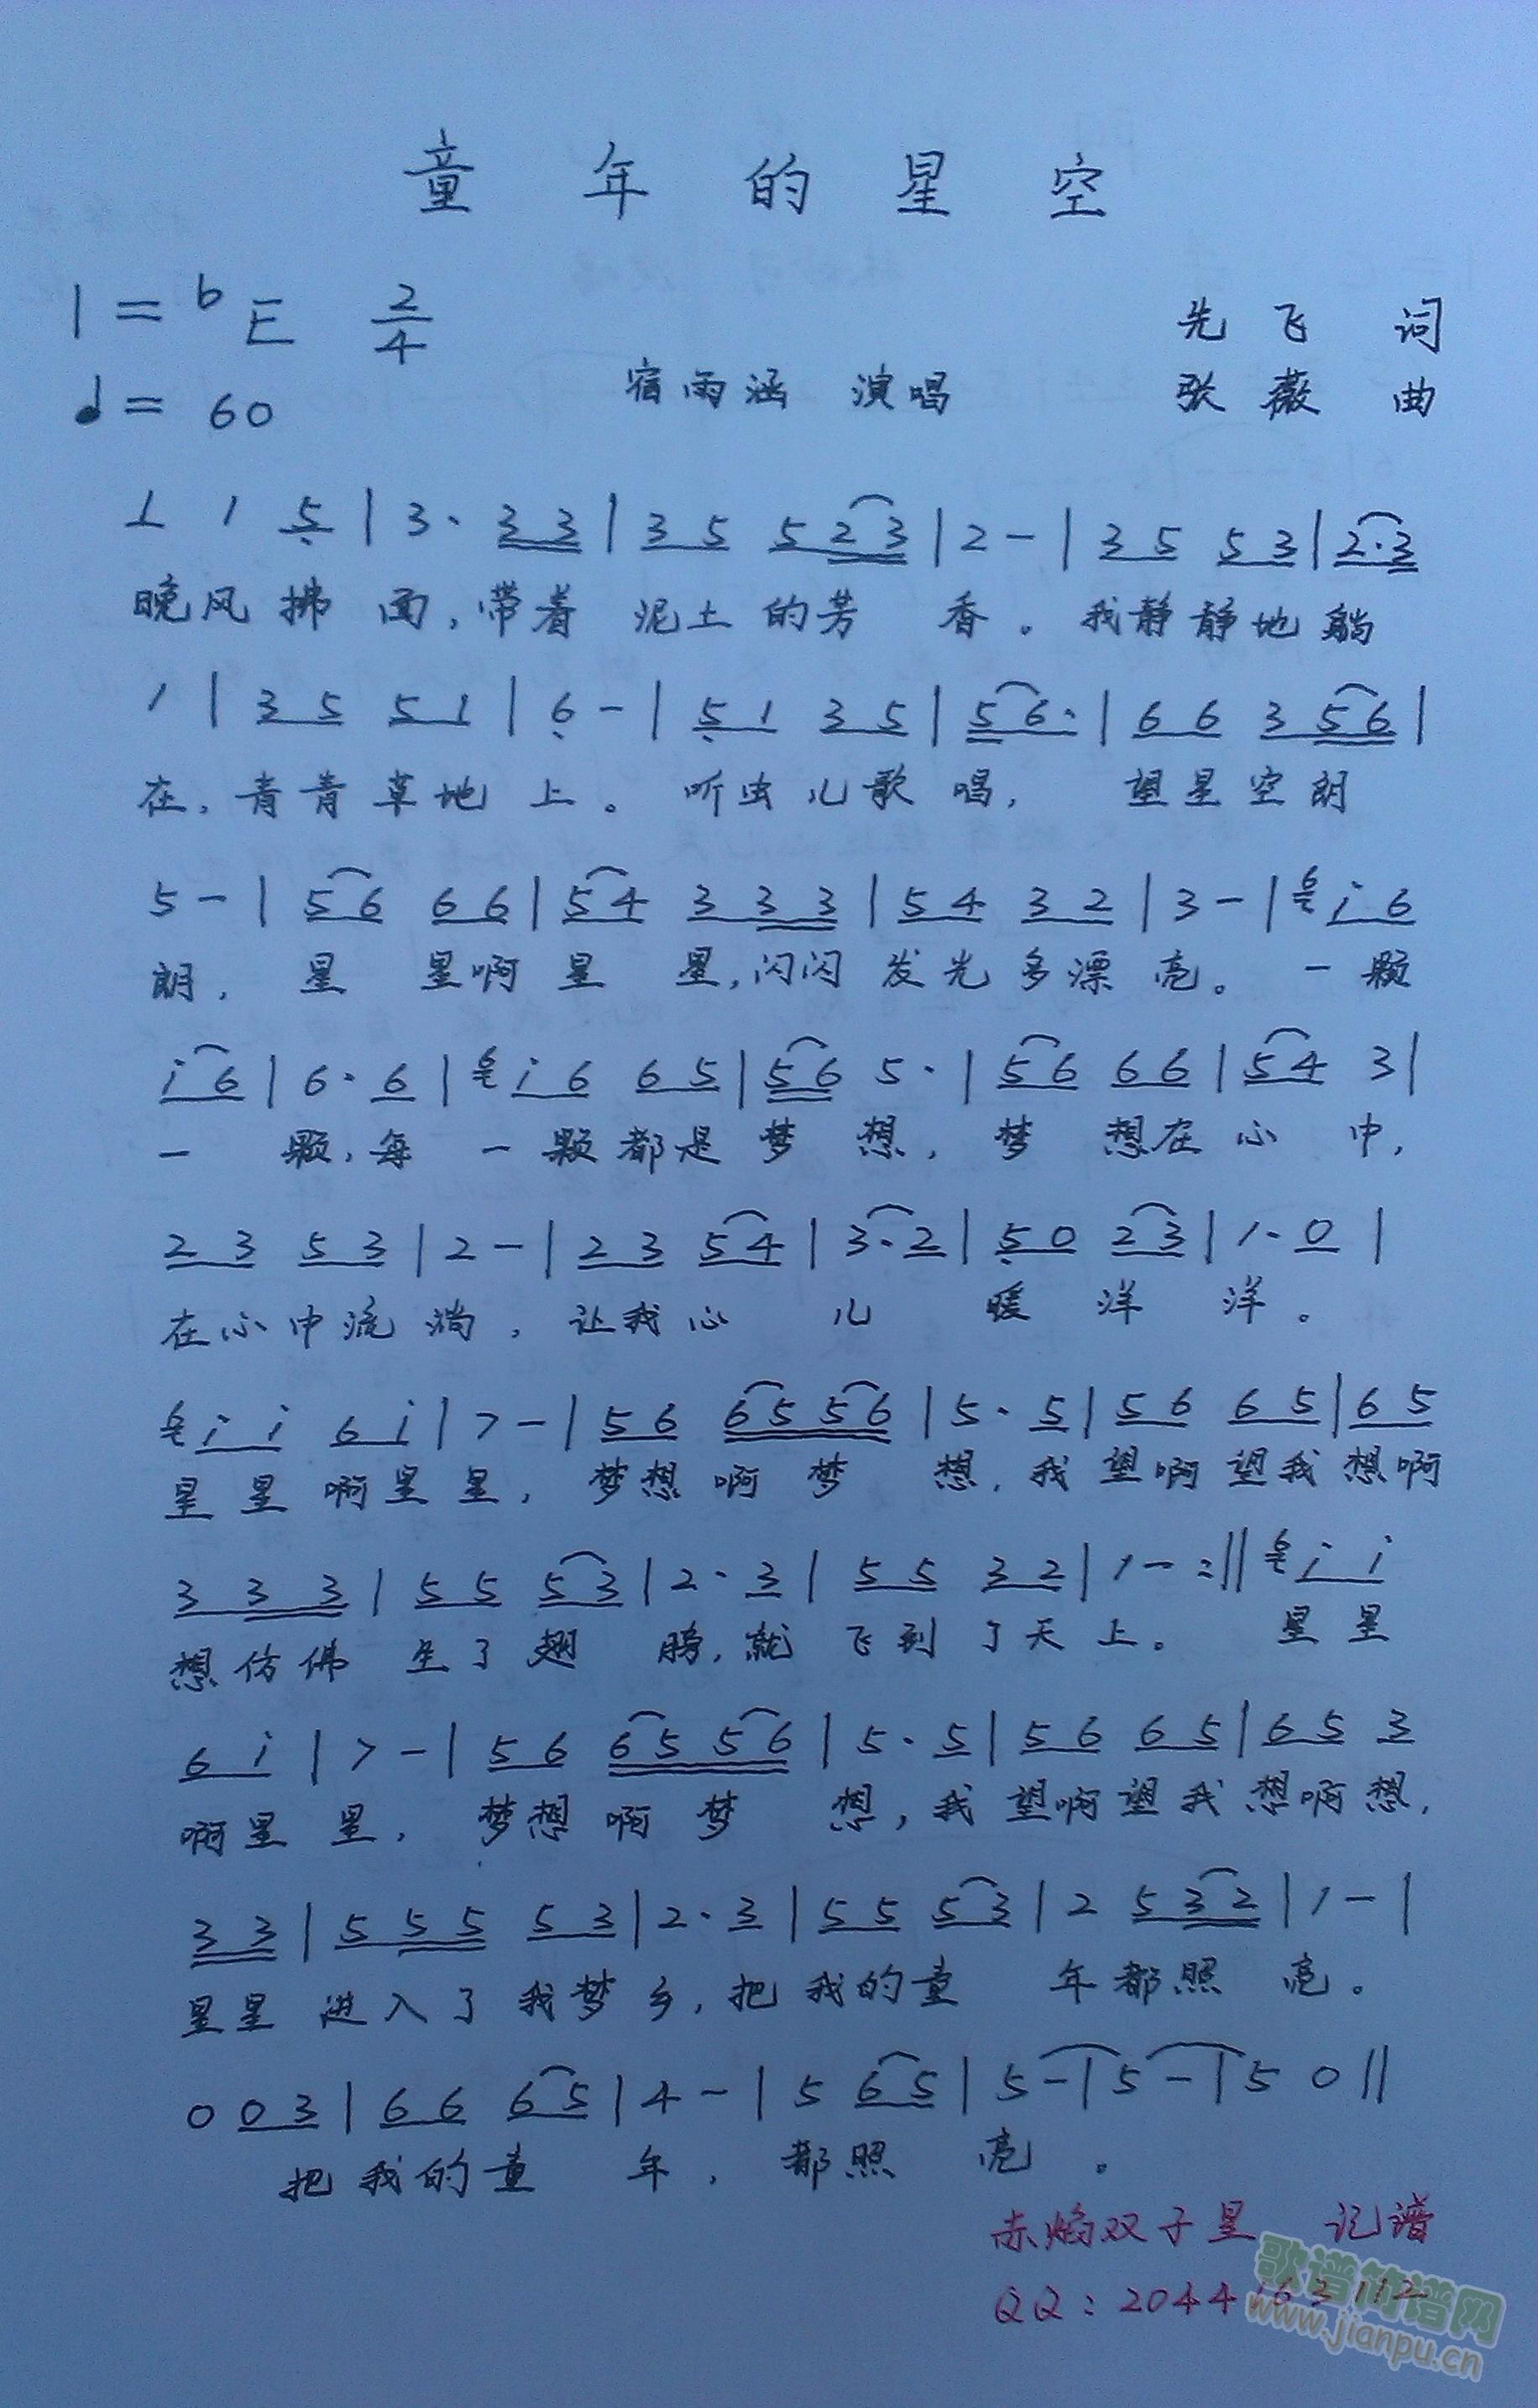 童年的星空
1=bE 2/4
先飞 词
♩=60
宿雨涵 演唱
张薇 曲
1 1 5 | 3· 3 3 | 3 5 5 2 3 | 2 - | 3 5 5 3 | 2·3
晚风拂面,带着泥土的芳香。我静静地躺
1 | 3 5 5 1 | 6 - | 5 1 3 5 | 5 6· | 6 6 3 5 6 |
在,青青草地上。听虫儿歌唱,望星空朗
5 - | 5 6 6 6 | 5 4 3 3 3 | 5 4 3 2 | 3 - | 6 i 6
朗,星星啊星星,闪闪发光多漂亮。一颗
i 6 | 6· 6 | 6 i 6 6 5 | 5 6 5· | 5 6 6 6 | 5 4 3 |
一颗,每一颗都是梦想,梦想在心中,
2 3 5 3 | 2 - | 2 3 5 4 | 3·2 | 5 0 2 3 | 1· 0 |
在心中流淌,让我心儿暖洋洋。
6 i i 6 i | 7 - | 5 6 6 5 5 6 | 5· 5 | 5 6 6 5 | 6 5
星星啊星星,梦想啊梦想,我望啊望我想啊
3 3 3 | 5 5 5 3 | 2· 3 | 5 5 3 2 | 1 - :|| 6 i i
想仿佛生了翅膀,就飞到了天上。星星
6 i | 7 - | 5 6 6 5 5 6 | 5· 5 | 5 6 6 5 | 6 5 3
啊星星,梦想啊梦想,我望啊望我想啊想,
3 3 | 5 5 5 5 3 | 2· 3 | 5 5 5 3 | 2 5 3 2 | 1 - |
星星进入了我梦乡,把我的童年都照亮。
0 0 3 | 6 6 6 5 | 4 - | 5 6 5 | 5 - | 5 - | 5 0 ||
把我的童年,都照亮。
赤焰双子星 记谱
QQ:2044163112
歌谱简谱网
www.jianpu.cn